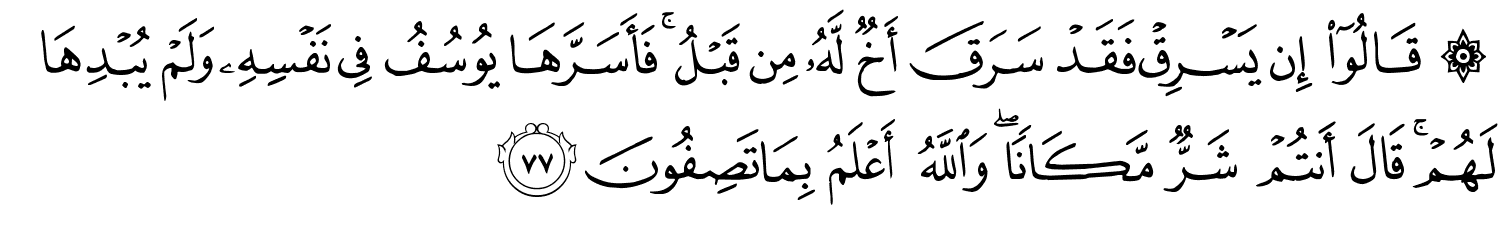 ۞ قَالُوٓا۟ إِن يَسْرِقْ فَقَدْ سَرَقَ أَخٌ لَّهُۥ مِن قَبْلُ ۚ فَأَسَرَّهَا يُوسُفُ فِى نَفْسِهِۦ وَلَمْ يُبْدِهَا
لَهُمْ ۚ قَالَ أَنتُمْ شَرٌّ مَّكَانًا ۖ وَٱللَّهُ أَعْلَمُ بِمَا تَصِفُونَ ٧٧